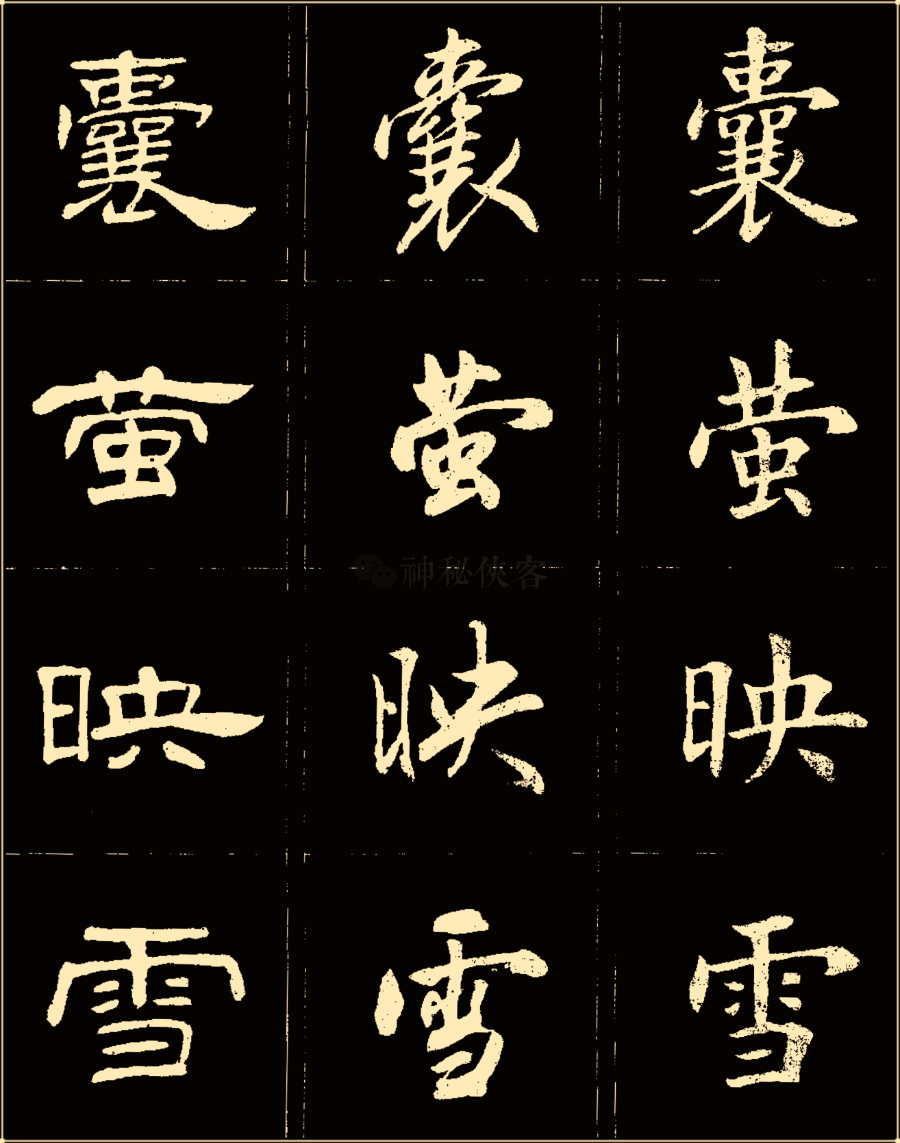 囊 囊 囊
萤 萤 萤
神秘侠客
映 映 映
雪 雪 雪